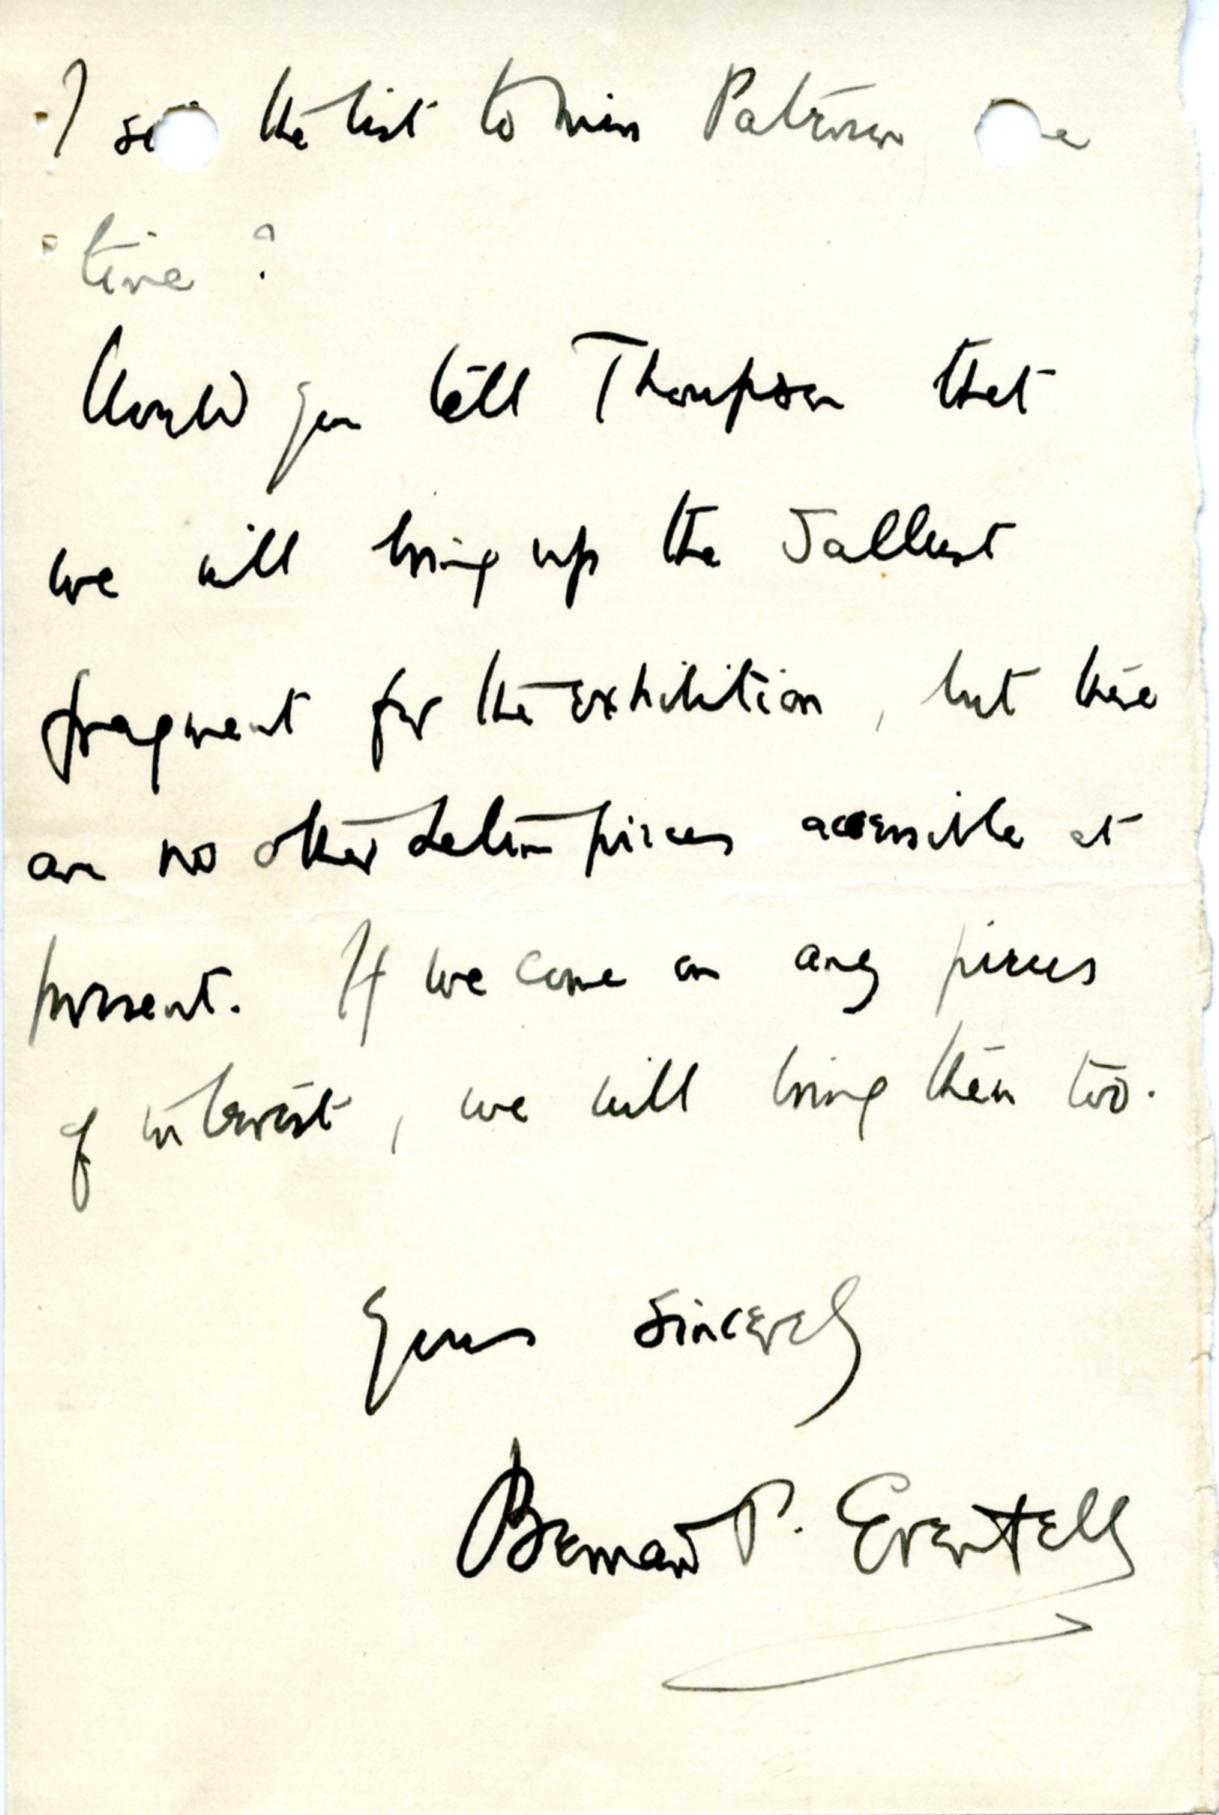 I se the list to Miss Paterson e
time ?
Would you tell Thompson that
we will bring up the Sallust
fragment for the exhibition , but there
are no other Latin pieces accessible at
present. If we come on any pieces
of interest , we will bring them too.
Yours sincerely
Bernard P. Grenfell